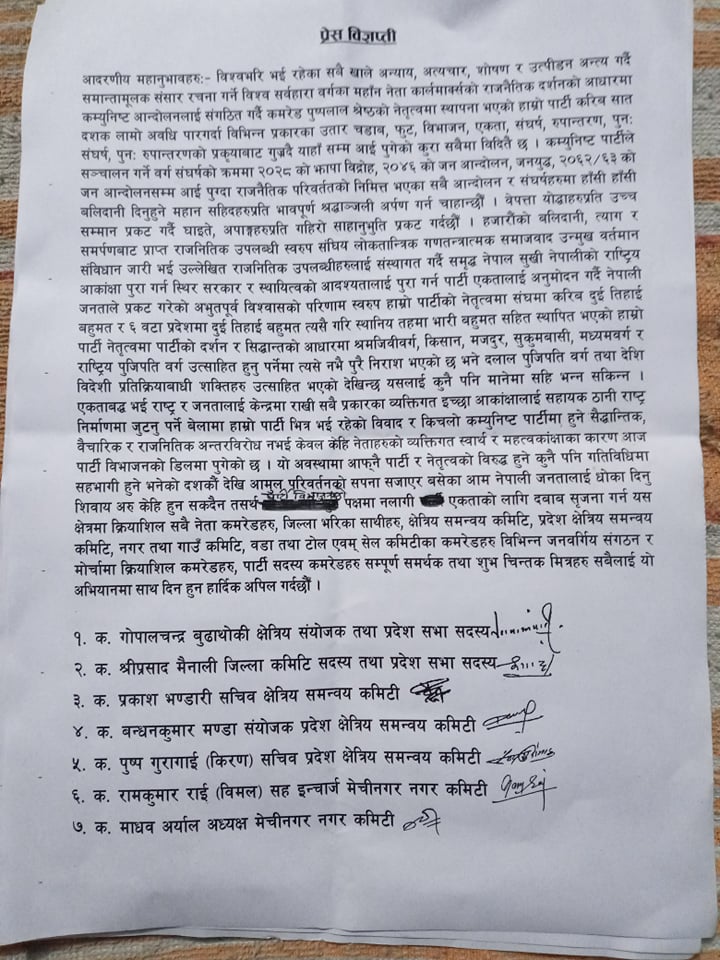 प्रेस विज्ञप्ती
आदरणीय महानुभावहरु:- विश्वभरि भई रहेका सबै खाले अन्याय, अत्यचार, शोषण र उत्पीडन अन्त्य गर्दै
समान्तामूलक संसार रचना गर्ने विश्व सर्वहारा वर्गका महाँन नेता कार्लमार्क्सको राजनैतिक दर्शनको आधारमा
कम्युनिष्ट आन्दोलनलाई संगठित गर्दै कमरेड पुष्पलाल श्रेष्ठको नेतृत्वमा स्थापना भएको हाम्रो पार्टी करिब सात
दशक लामो अवधि पारगर्दा विभिन्न प्रकारका उतार चडाब, फुट, विभाजन, एकता, संघर्ष, रुपान्तरण, पुन:
संघर्ष, पुन: रुपान्तरणको प्रकृयाबाट गुज्रदै यहाँ सम्म आई पुगेको कुरा सबैमा विदितै छ । कम्युनिष्ट पार्टीले
सञ्चालन गर्ने वर्ग संघर्षको क्रममा २०२८ को झापा विद्रोह, २०४६ को जन आन्दोलन, जनयुद्ध, २०६२/६३ को
जन आन्दोलनसम्म आई पुग्दा राजनैतिक परिवर्ततको निमित्त भएका सबै आन्दोलन र संघर्षहरुमा हाँसी हाँसी
बलिदानी दिनुहुने महान सहिदहरुप्रति भावपूर्ण श्रद्धाञ्जली अर्पण गर्न चाहान्छौं । वेपत्ता योद्धाहरुप्रति उच्च
सम्मान प्रकट गर्दै घाइते, अपाङ्गहरुप्रति गहिरो साहानुभुति प्रकट गर्दछौं । हजारौंको बलिदानी, त्याग र
समर्पणबाट प्राप्त राजनितिक उपलब्धी स्वरुप संघिय लोकतान्त्रिक गणतन्त्रात्मक समाजवाद उन्मुख वर्तमान
संविधान जारी भई उल्लेखित राजनितिक उपलब्धीहरुलाई संस्थागत गर्दै समृद्ध नेपाल सुखी नेपालीको राष्ट्रिय
आकांक्षा पुरा गर्न स्थिर सरकार र स्थायित्वको आदश्यतालाई पुरा गर्न पार्टी एकतालाई अनुमोदन गर्दै नेपाली
जनताले प्रकट गरेको अभुतपूर्व विश्वासको परिणाम स्वरुप हाम्रो पार्टीको नेतृत्वमा संघमा करिब दुई तिहाई
बहुमत र ६ वटा प्रदेशमा दुई तिहाई बहुमत त्यसै गरि स्थानिय तहमा भारी बहुमत सहित स्थापित भएको हाम्रो
पार्टी नेतृत्वमा पार्टीको दर्शन र सिद्धान्तको आधारमा श्रमजिवीवर्ग, किसान, मजदुर, सुकुमबासी, मध्यमवर्ग र
राष्ट्रिय पुजिपति वर्ग उत्साहित हुनु पर्नेमा त्यसे नभै पुरै निराश भएको छ भने दलाल पुजिपति वर्ग तथा देशि
विदेशी प्रतिक्रियाबाधी शक्तिहरु उत्साहित भएको देखिन्छ यसलाई कुनै पनि मानेमा सहि भन्न सकिन्न ।
एकताबद्ध भई राष्ट्र र जनतालाई केन्द्रमा राखी सबै प्रकारका व्यक्तिगत इच्छा आकांक्षालाई सहायक ठानी राष्ट्र
निर्माणमा जुट्नु पर्ने बेलामा हाम्रो पार्टी भित्र भई रहेको विवाद र किचलो कम्युनिष्ट पार्टीमा हुने सैद्धान्तिक,
वैचारिक र राजनितिक अन्तरविरोध नभई केवल केहि नेताहरुको व्यक्तिगत स्वार्थ र महत्वकांक्षाका कारण आज
पार्टी विभाजनको डिलमा पुगेको छ । यो अवस्थामा आफ्नै पार्टी र नेतृत्वको विरुद्ध हुने कुनै पनि गतिविधिमा
सहभागी हुने भनेको दशकौं देखि आमुल परिवर्तनको सपना सजाएर बसेका आम नेपाली जनतालाई धोका दिनु
शिवाय अरु केहि हुन सकदैन तसर्थ पार्टी विभाजनको पक्षमा नलागी एकताको लागि दवाव सृजना गर्न यस
क्षेत्रमा क्रियाशिल सबै नेता कमरेडहरु, जिल्ला भरिका साथीहरु, क्षेत्रिय समन्वय कमिटि, प्रदेश क्षेत्रिय समन्वय
कमिटि, नगर तथा गाउँ कमिटि, वडा तथा टोल एवम् सेल कमिटीका कमरेडहरु विभिन्न जनवर्गिय संगठन र
मोर्चामा क्रियाशिल कमरेडहरु, पार्टी सदस्य कमरेडहरु सम्पूर्ण समर्थक तथा शुभ चिन्तक मित्रहरु सबैलाई यो
अभियानमा साथ दिन हुन हार्दिक अपिल गर्दछौं ।
१. क. गोपालचन्द्र बुढाथोकी क्षेत्रिय संयोजक तथा प्रदेश सभा सदस्य
२. क. श्रीप्रसाद मैनाली जिल्ला कमिटि सदस्य तथा प्रदेश सभा सदस्य
३. क. प्रकाश भण्डारी सचिव क्षेत्रिय समन्वय कमिटी
४. क. बन्धनकुमार मण्डा संयोजक प्रदेश क्षेत्रिय समन्वय कमिटी
५. क. पुष्प गुरागाई (किरण) सचिव प्रदेश क्षेत्रिय समन्वय कमिटी
६. क. रामकुमार राई (विमल) सह इन्चार्ज मेचीनगर नगर कमिटी
७. क. माधव अर्याल अध्यक्ष मेचीनगर नगर कमिटी